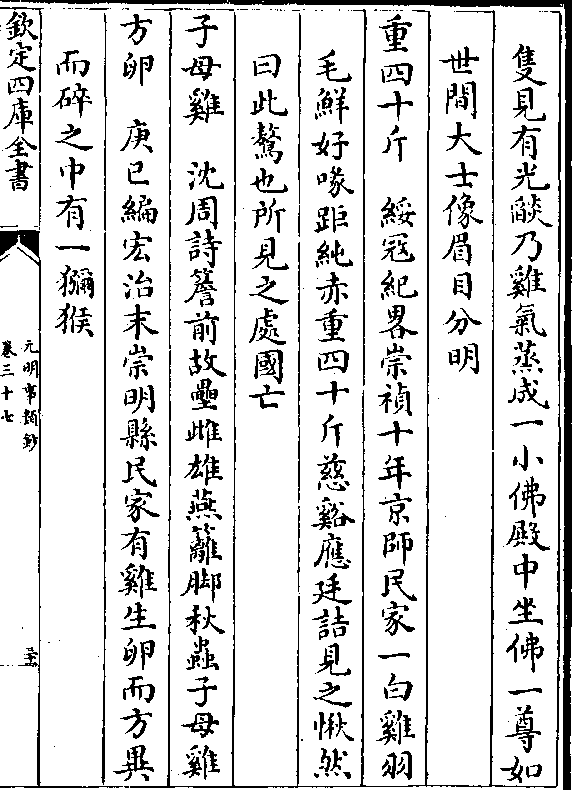 隻見有光燄乃雞氣蒸成一小佛殿中坐佛一尊如
世間大士像眉目分明
重四十斤　綏冦紀畧崇禎十年京師民家一白雞羽
毛鮮好喙距純赤重四十斤慈谿應廷詰見之愀然
曰此鶩也所見之處國亡
子母雞　沈周詩簷前故壘雌雄燕籬脚秋蟲子母雞
方卵　庚巳編宏治末崇明縣民家有雞生卵而方異
而碎之中有一獼猴
欽定四庫全書
元明事類鈔
卷三十七